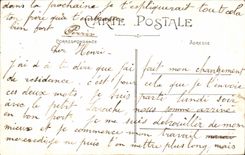 dans la prochaine je t'expliquerai tout cela
ton frère qui t'embrasse
bien fort Pierre
CARTE POSTALE
CORRESPONDANCE
ADRESSE
Cher Henri.
J'ai à te dire que j'ai fait mon changement
de résidence. c'est pour cela que je t'envoie
ces deux mots. Je suis parti lundi soir
avec le petit nous sommes arrivé
à bon port, je me suis débrouiller de mon
mieux et je commence mon travail
ne peux t'en mettre plus long mais